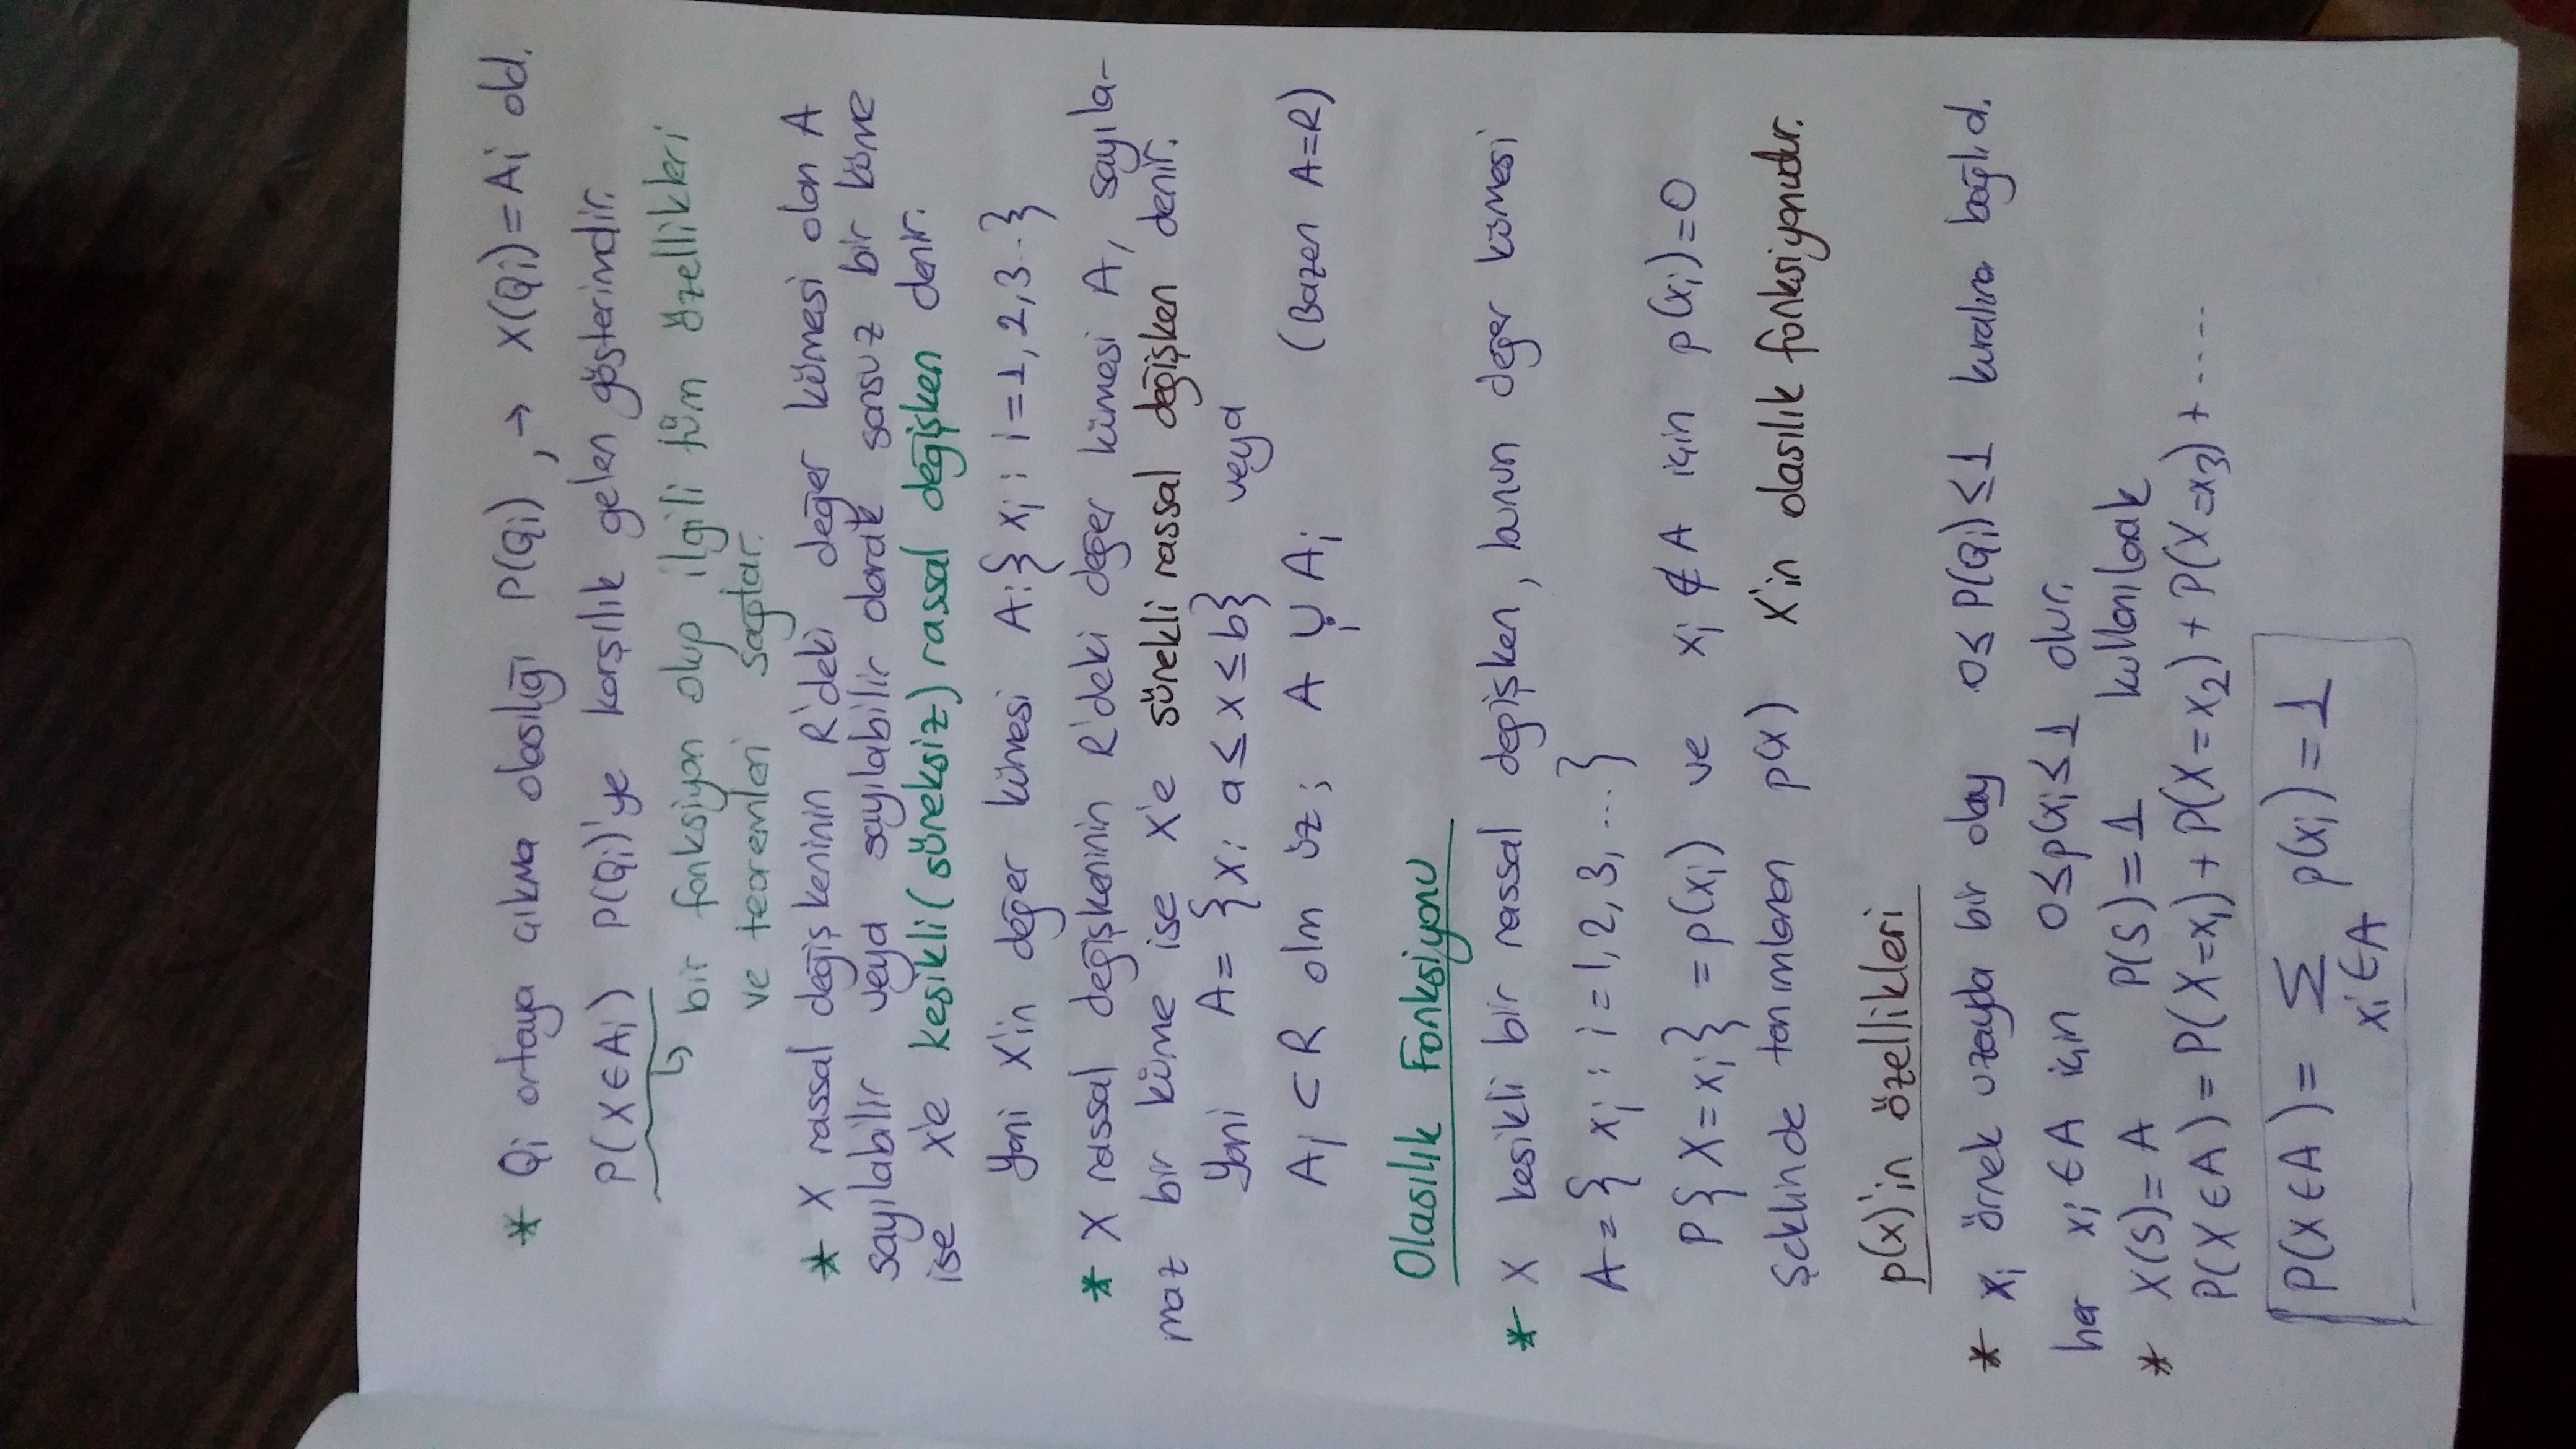 * Qi ortaya çıkma olasılığı P(Qi) , → X(Qi)=Ai old.
P(X∈Ai) P(Qi)'ye karşılık gelen gösterimdir.
↳ bir fonksiyon olup ilgili tüm özellikleri
ve teoremleri sağlar.
* X rassal değişkeninin R'deki değer kümesi olan A
sayılabilir veya sayılabilir olarak sonsuz bir küme
ise X'e kesikli (süreksiz) rassal değişken denir.
Yani X'in değer kümesi A:{ xi : i=1,2,3..}
* X rassal değişkeninin R'deki değer kümesi A, sayıla-
maz bir küme ise X'e sürekli rassal değişken denir.
Yani A= {x: a≤x≤b} veya
Ai ⊂ R olm üz; A ∪i Ai (Bazen A=R)
Olasılık Fonksiyonu
* X kesikli bir rassal değişken, bunun değer kümesi
A={ xi : i=1,2,3, ...}
P{X=xi} = p(xi) ve xi ∉ A için p(xi)=0
Şeklinde tanımlanan p(x) X'in olasılık fonksiyonudur.
p(x)'in özellikleri
* xi örnek uzayda bir olay 0≤ P(Qi) ≤1 kuralına bağlıd.
her xi ∈ A için 0≤p(xi≤1 olur.
* X(S)= A P(S)=1 kullanılarak
P(X∈A) = P(X=x1) + P(X=x2) + P(X=x3) + .....
P(X∈A)= Σ xi∈A p(xi)=1